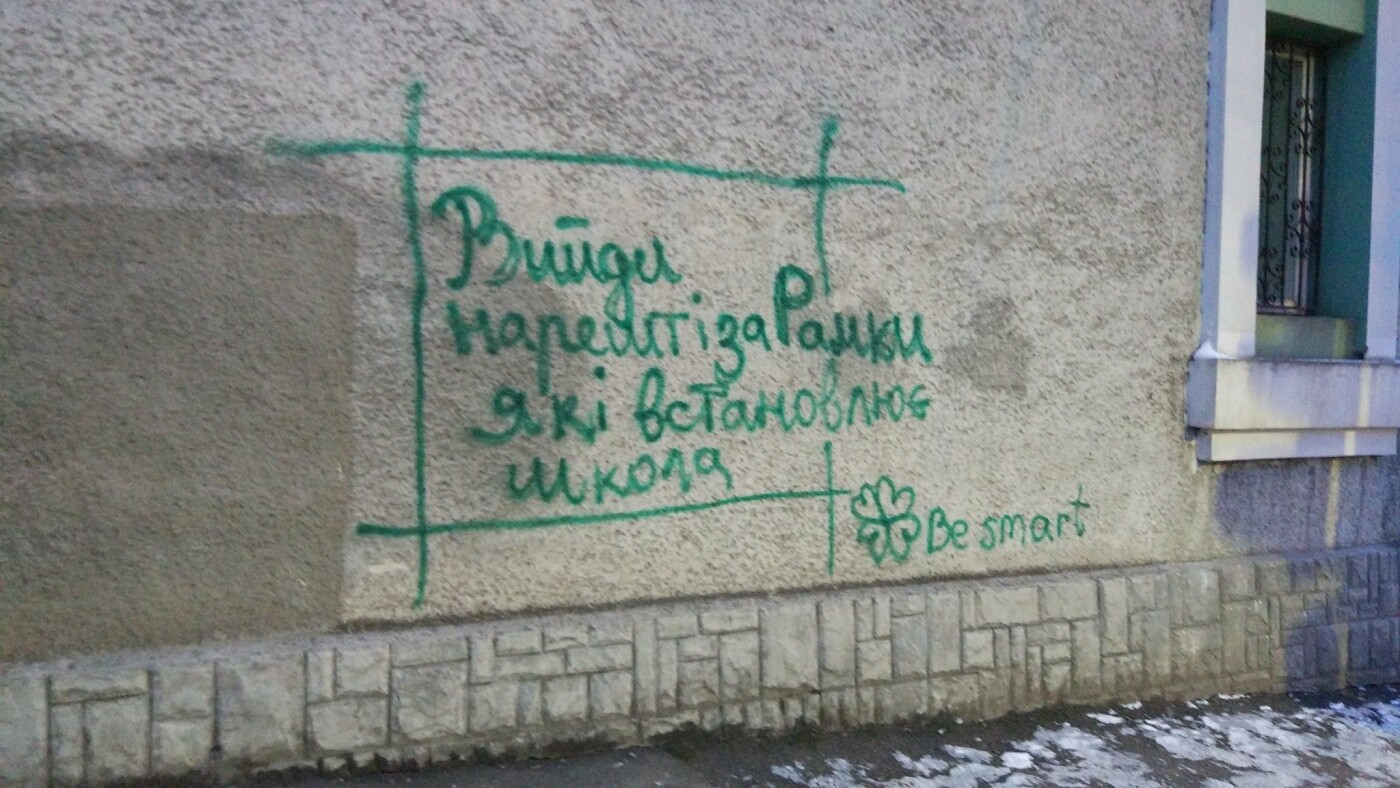 Вийди
нарешті за Рамки
які встановлює
школа
Be smart